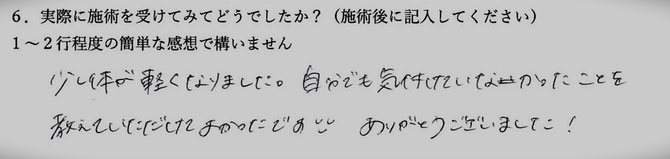 6．実際に施術を受けてみてどうでしたか？（施術後に記入してください）
1～2行程度の簡単な感想で構いません
少し体が軽くなりました。自分でも気付けていなかったことを
教えていただけてよかったです ありがとうございました！